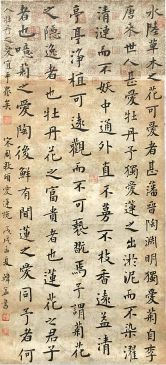 水陸草木之花可愛者甚蕃晉陶淵明獨愛菊自李
唐來世人甚愛牡丹予獨愛蓮之出淤泥而不染濯
清漣而不妖中通外直不蔓不枝香遠益清
亭亭淨植可遠觀而不可褻翫焉予謂菊花
之隱逸者也牡丹花之富貴者也蓮花之君子
者也噫菊之愛陶後鮮有聞蓮之愛同予者何
人牡丹之愛宜乎衆矣 宋周敦頤愛蓮說 戊戌